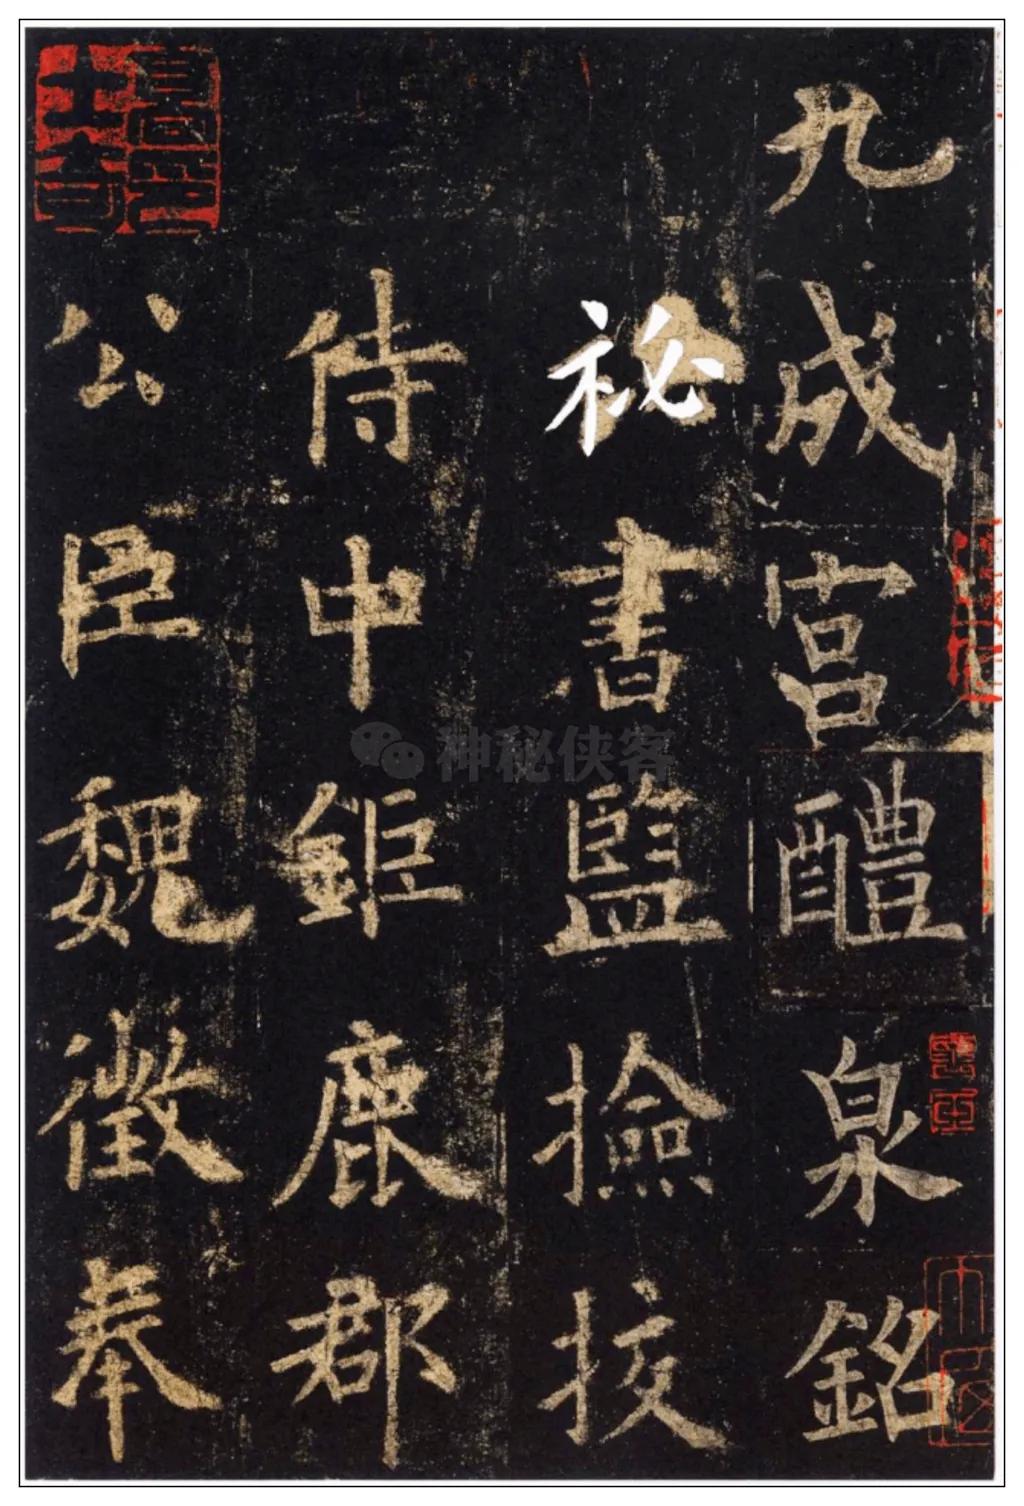 九成宮醴泉銘
祕書監撿挍
侍中鉅鹿郡
公臣魏徵奉
神秘侠客